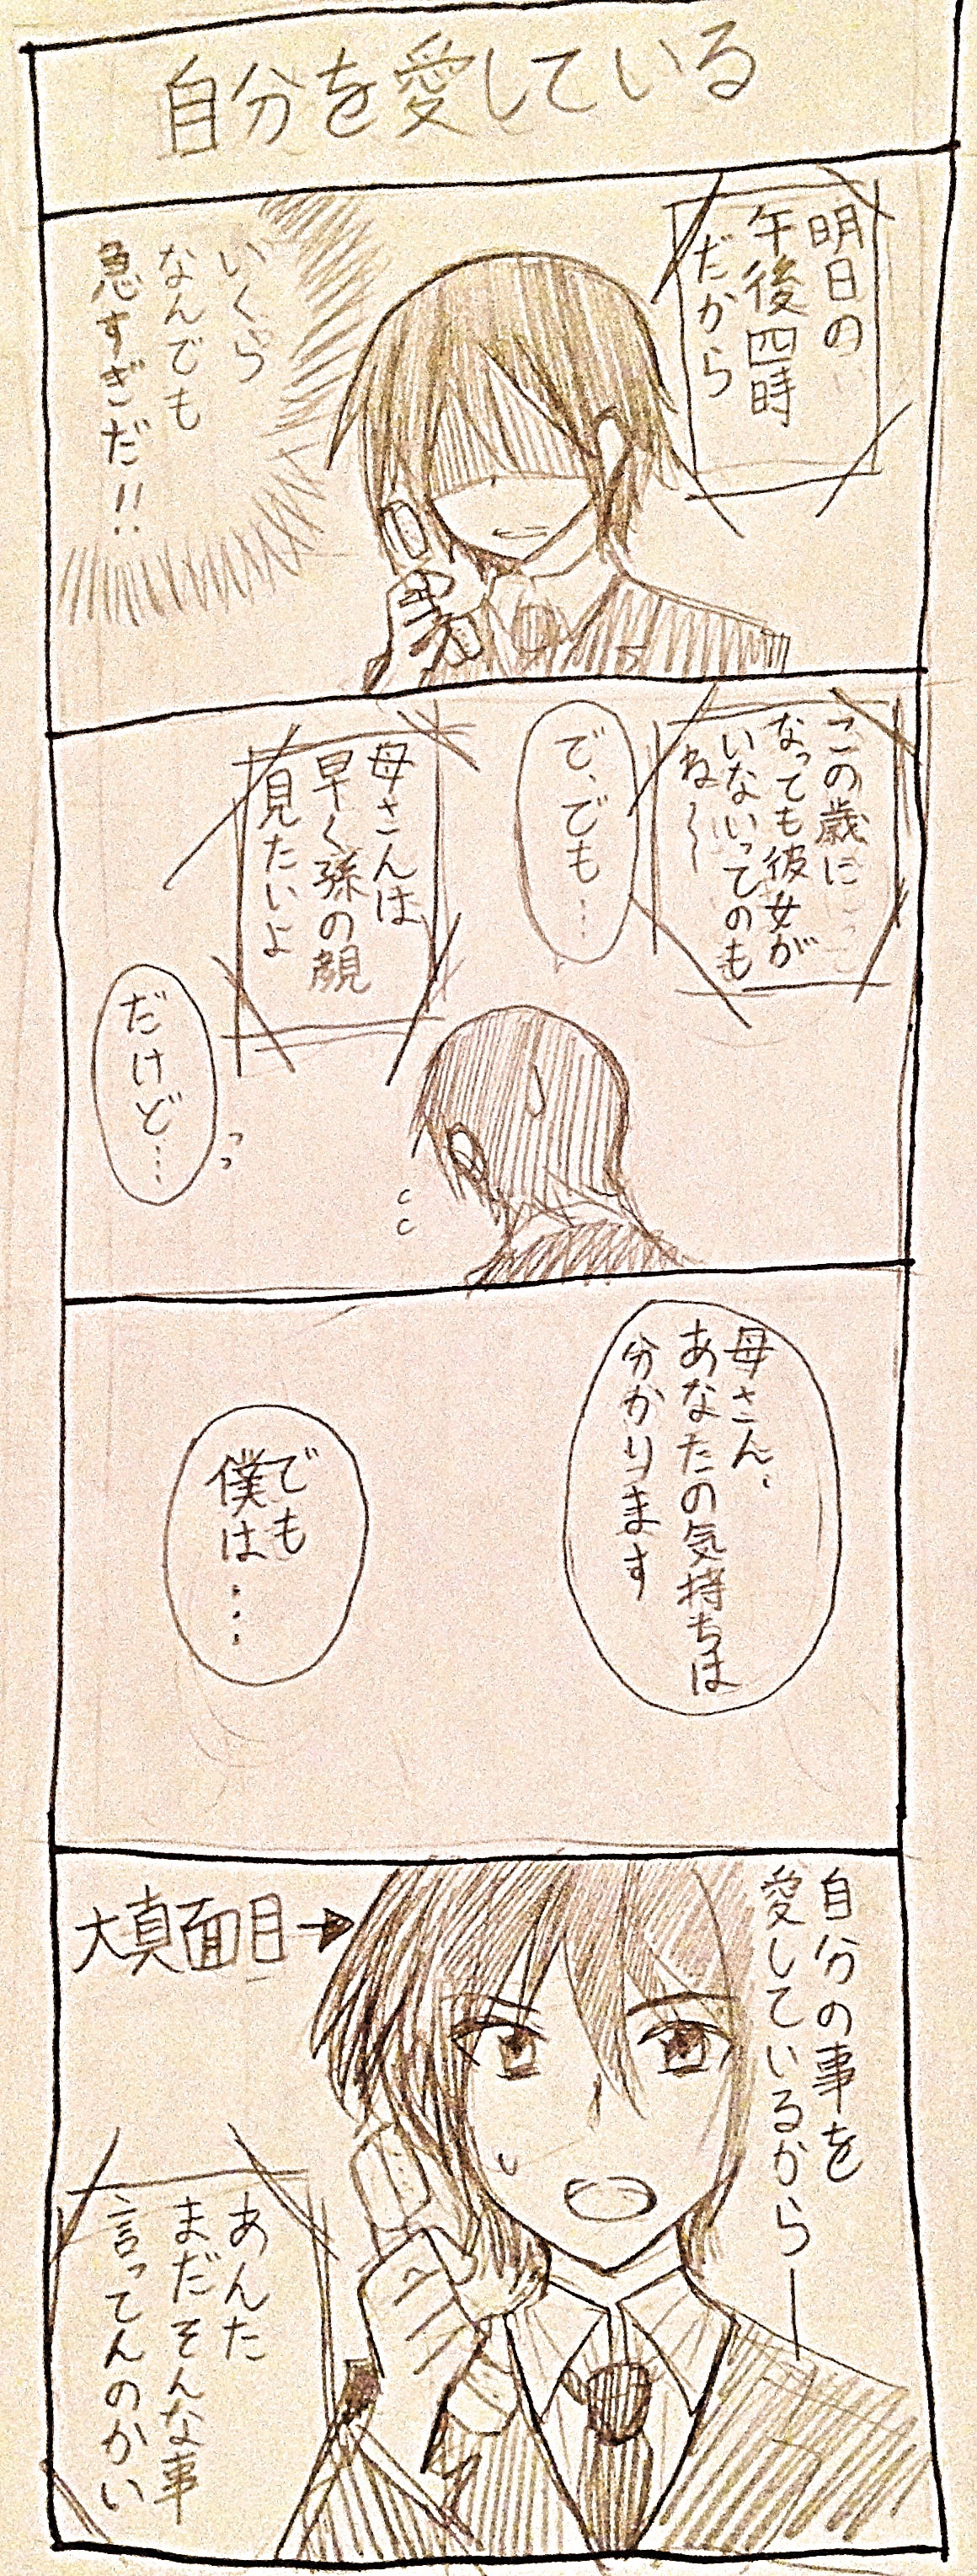 自分を愛している
明日の
午後四時
だから
いくら
なんでも
急すぎだ!!
この歳に
なっても彼女が
いないってのも
ね〜
で、でも…
母さんは
早く孫の顔
見たいよ
だけど…
母さん、
あなたの気持ちは
分かります
でも
僕は…
自分の事を
愛しているから―
大真面目→
あんた
まだそんな事
言ってんのかい